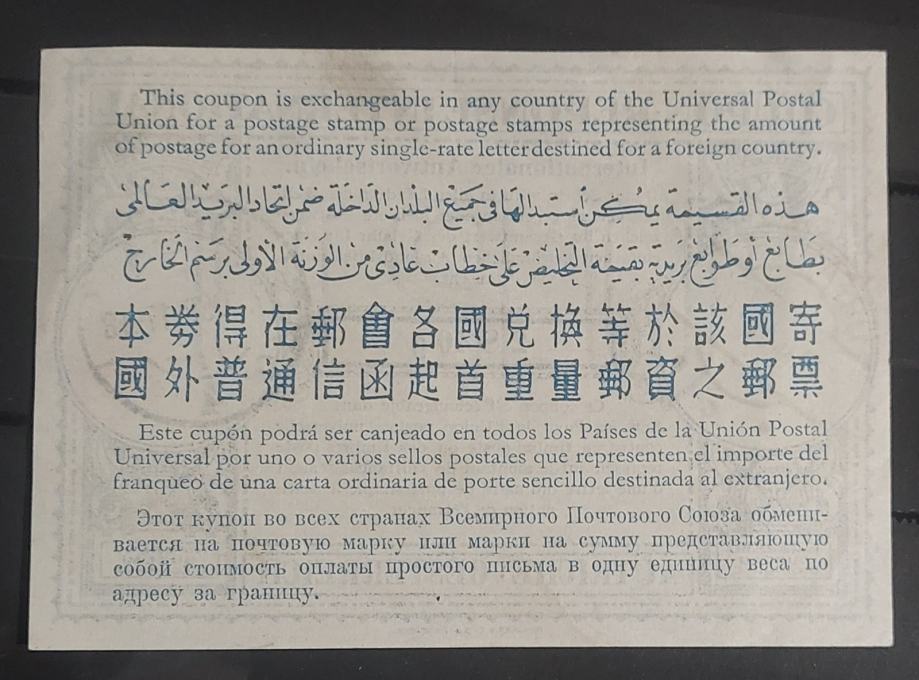 This coupon is exchangeable in any country of the Universal Postal
Union for a postage stamp or postage stamps representing the amount
of postage for an ordinary single-rate letter destined for a foreign country.
هذه القسيمة يمكن أستبدالها فى جميع البلدان الداخلة ضمن اتحاد البريد العالمى
بطابع أو طوابع بريدية بقيمة التخليص على خطاب عادى من الوزنة الأولى برسم الخارج
本券得在郵會各國兌換等於該國寄
國外普通信函起首重量郵資之郵票
Este cupón podrá ser canjeado en todos los Países de la Unión Postal
Universal por uno o varios sellos postales que representen el importe del
franqueo de una carta ordinaria de porte sencillo destinada al extranjero.
Этот купон во всех странах Всемирного Почтового Союза обмени-
вается на почтовую марку или марки на сумму представляющую
собой стоимость оплаты простого письма в одну единицу веса по
адресу за границу.